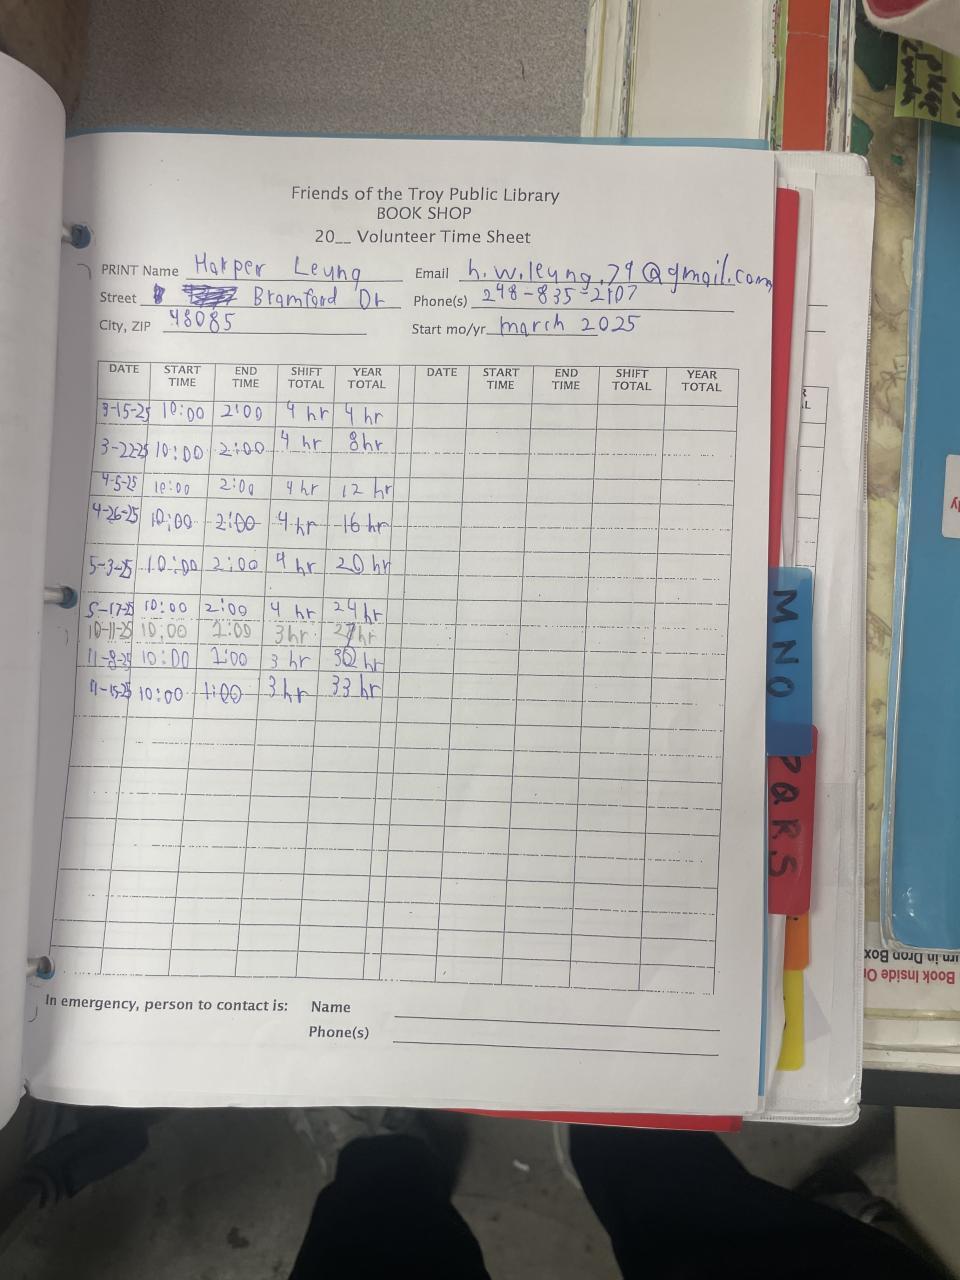 Friends of the Troy Public Library
BOOK SHOP
20__ Volunteer Time Sheet
PRINT Name Harper Leung Email h.w.leung.79@gmail.com
Street Bramford Dr Phone(s) 248-835-2107
City, ZIP 48085 Start mo/yr march 2025
DATE START TIME END TIME SHIFT TOTAL YEAR TOTAL DATE START TIME END TIME SHIFT TOTAL YEAR TOTAL
3-15-25 10:00 2:00 4 hr 4 hr
3-22-25 10:00 2:00 4 hr 8hr
4-5-25 10:00 2:00 4 hr 12 hr
4-26-25 10:00 2:00 4 hr 16 hr
5-3-25 10:00 2:00 4 hr 20 hr
5-17-25 10:00 2:00 4 hr 24 hr
10-11-25 10:00 1:00 3 hr 27 hr
11-8-25 10:00 1:00 3 hr 30 hr
11-15-25 10:00 1:00 3 hr 33 hr
In emergency, person to contact is: Name
Phone(s)
MNO
PQRS
Book Inside
urn in Drop Box